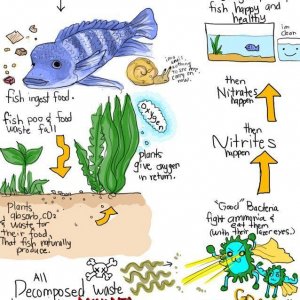 fish happy and
healthy
im clear
fish ingest food.
fish poo & food
waste fall
Oxygen
plants
give oxygen
in return.
then
Nitrates
happen
then
Nitrites
happen
Plants
absorb CO2
& waste for
their food
that fish naturally
produce.
"Good" Bacteria
fight ammonia &
eat them
(with their lazer eyes.)
All
Decomposed waste